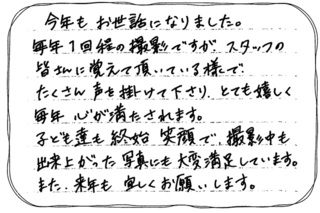 今年もお世話になりました。
毎年1回程の撮影ですが、スタッフの
皆さんに覚えて頂いている様で
たくさん声を掛けて下さり、とても嬉しく
毎年心が満たされます。
子ども達も終始笑顔で、撮影中も
出来上がった写真にも大変満足しています。
また、来年も宜しくお願いします。